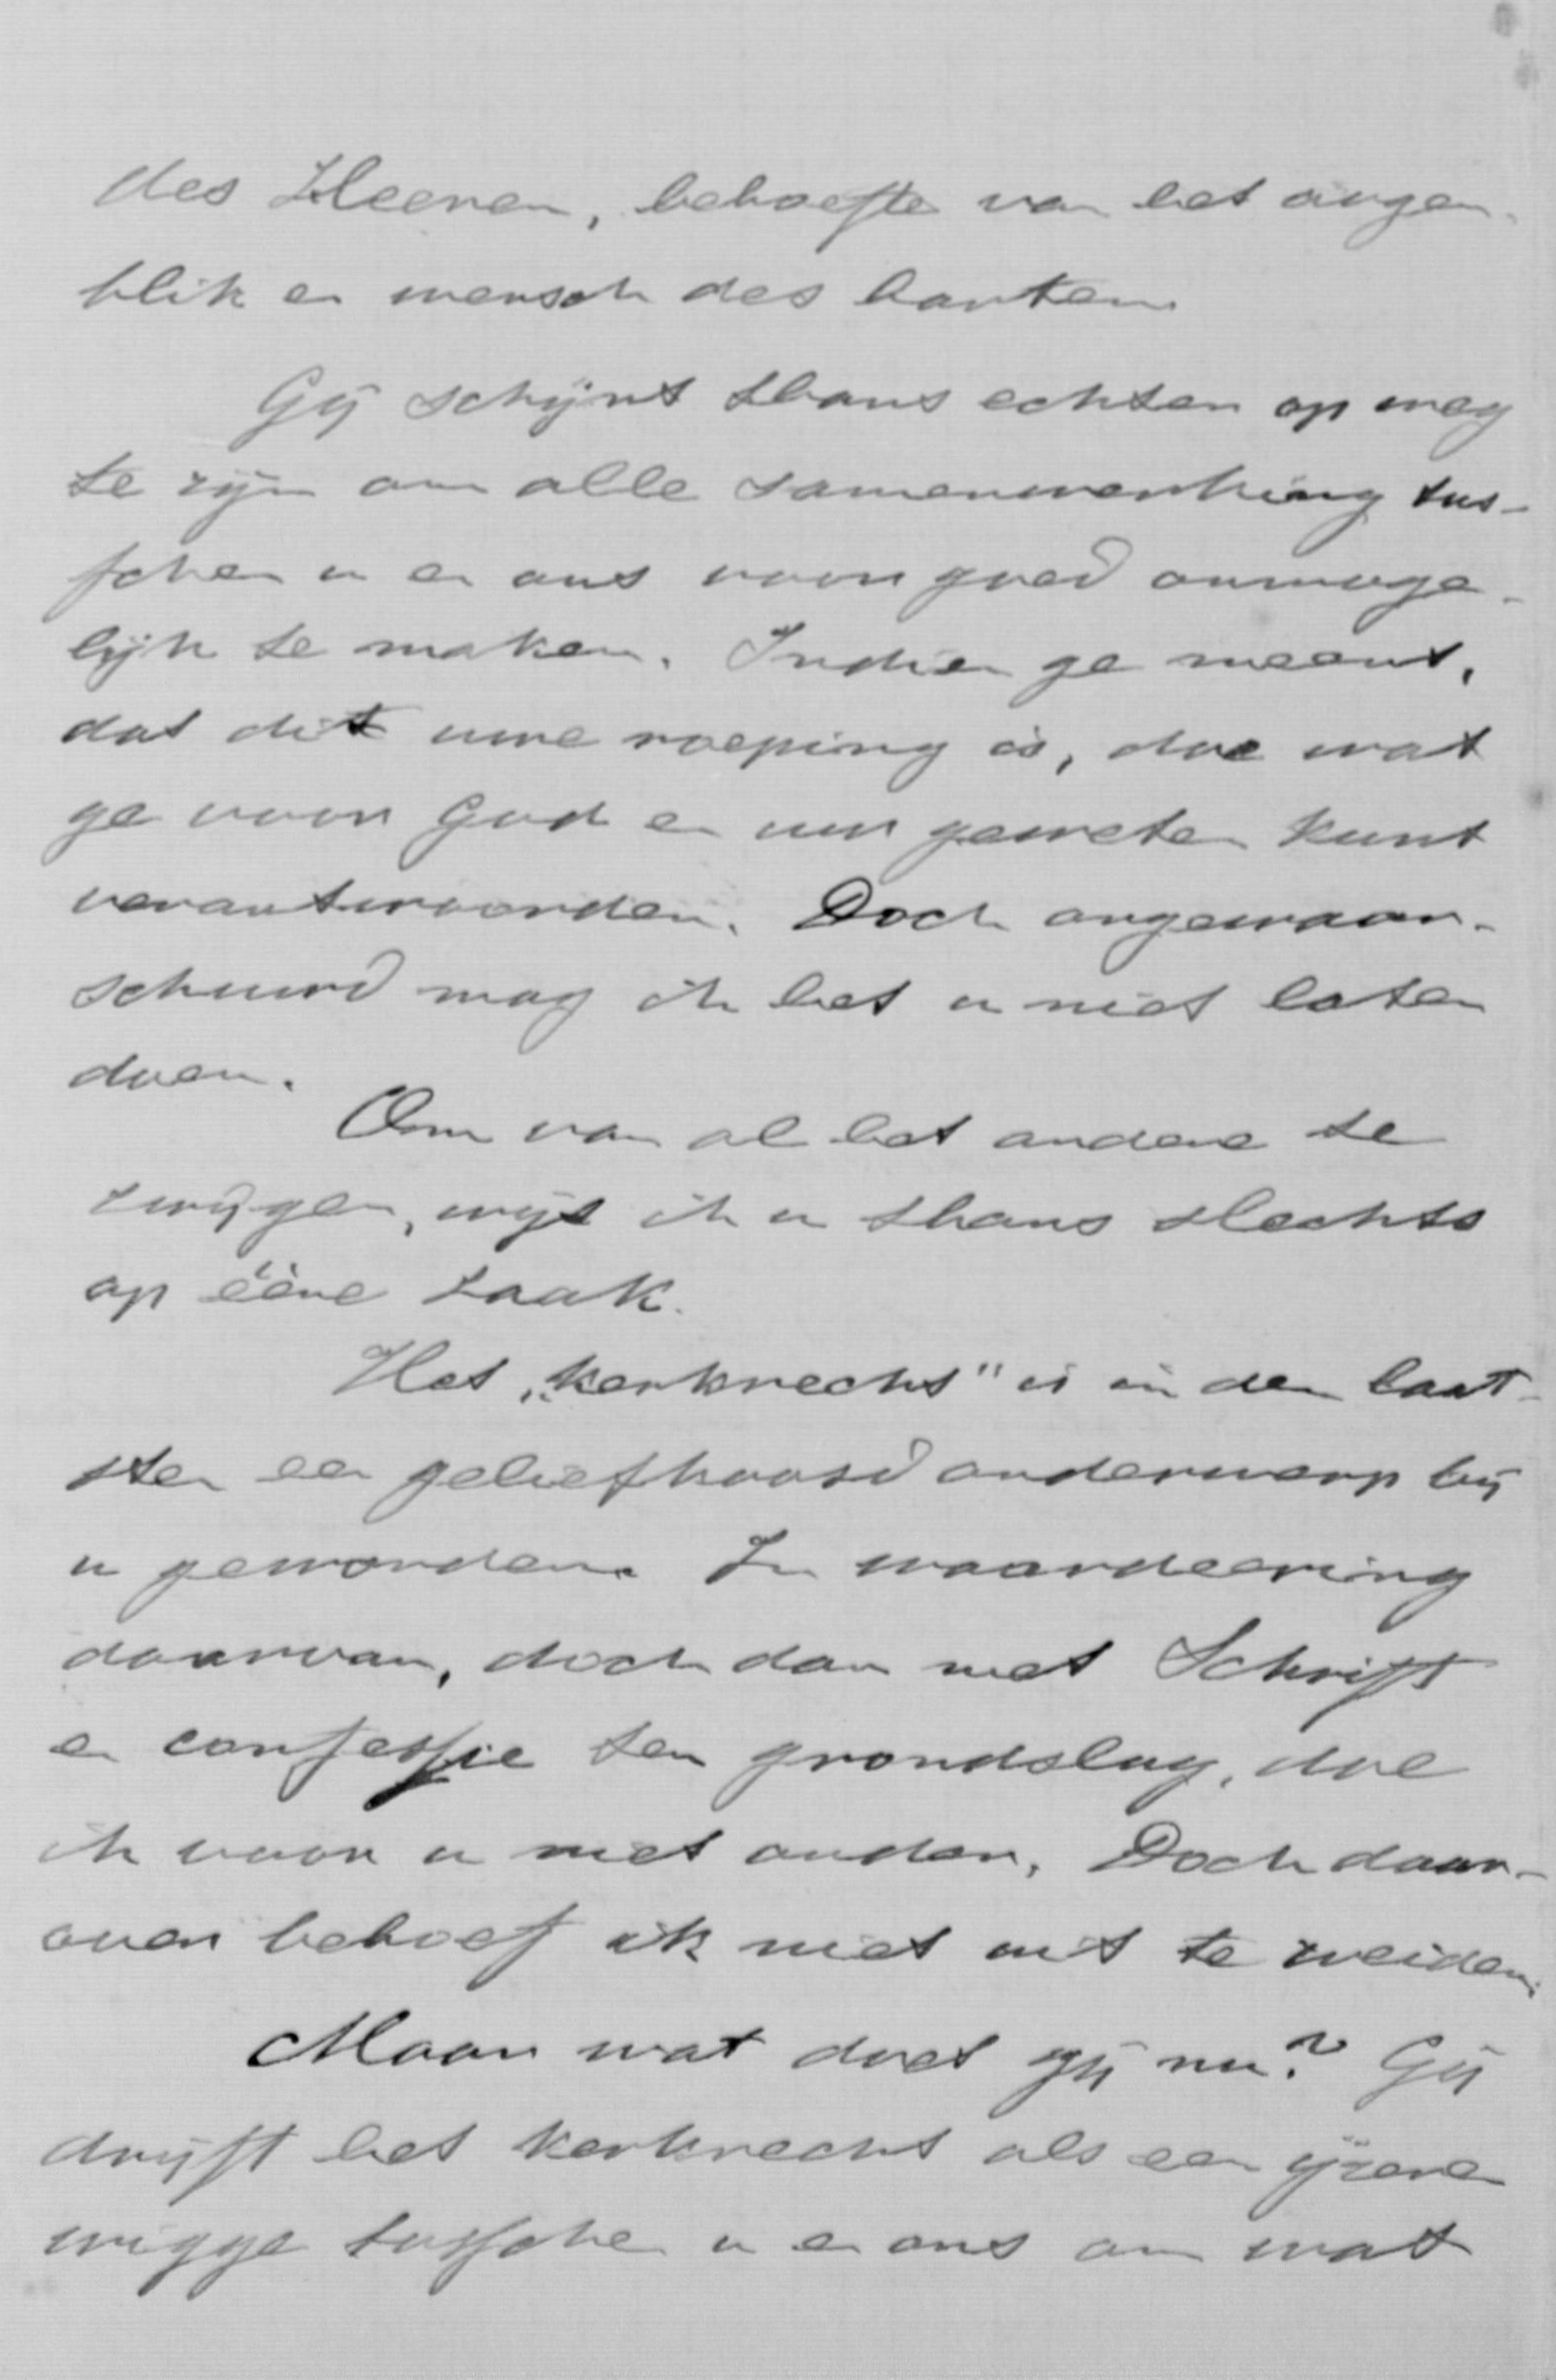 des Heeren, behoefte van het oogen-
blik en wensch des harten.
Gij schijnt thans echter op weg
te zijn om alle samenwerking tus-
schen u en ons voor goed onmoge-
lijk te maken. Indien ge meent,
dat dit uwe roeping is, doe wat
ge voor God en uw geweten kunt
verantwoorden. Doch ongewaar-
schuwd mag ik het u niet laten
doen.
Om van al het andere te
zwijgen, wijs ik u thans slechts
op ééne zaak.
Het „kerkrecht" is in den laat-
sten een geliefkoosd onderwerp bij
u geworden. In waardeering
daarvan, doch dan met Schrift
en confessie ten grondslag, doe
ik voor u niet onder. Doch daar-
over behoef ik niet uit te weiden.
Maar wat doet gij nu? Gij
drijft het kerkrecht als een ijzeren
wigge tusschen u en ons om wat